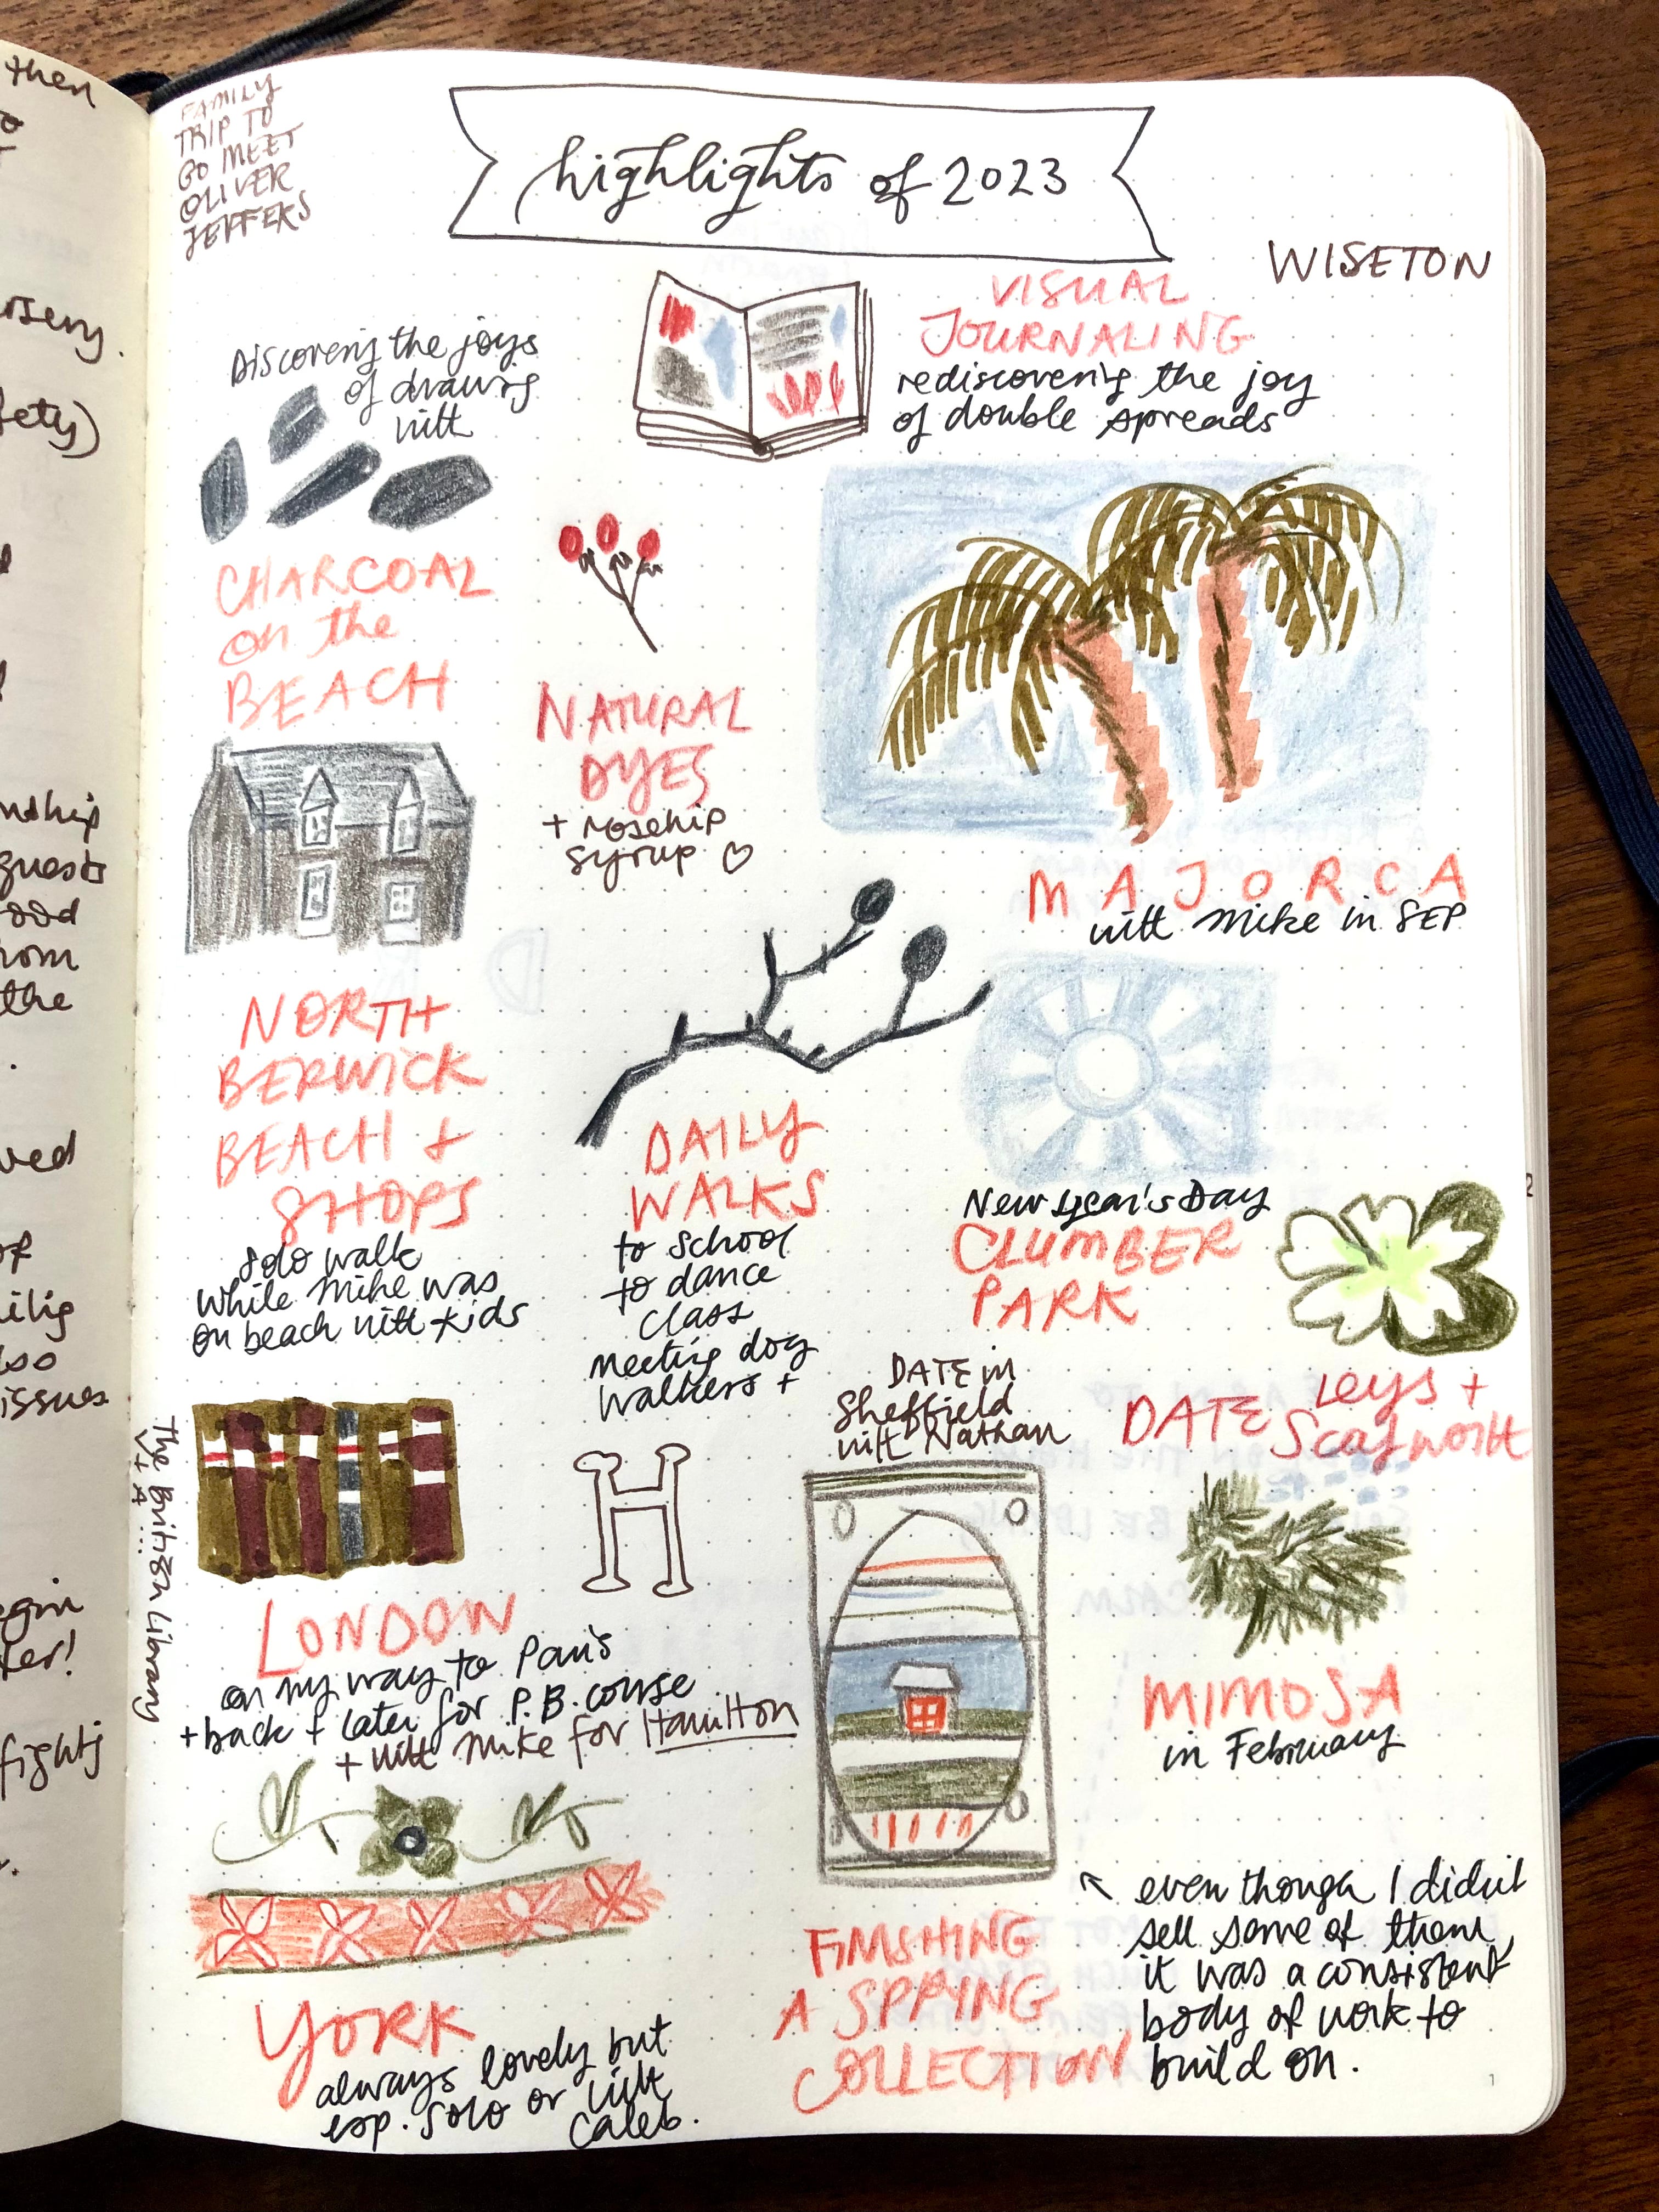 then
rsery.
fety)
ndship
guests
ood
hom
the
ved
of
ilig
lso
issues
egin
ter!
fights
FAMILY
TRIP TO
GO MEET
OLIVER
JEFFERS
highlights of 2023
WISETON
VISUAL
JOURNALING
rediscovering the joy
of double spreads
Discovering the joys
of drawing
with
CHARCOAL
on the
BEACH
NATURAL
DYES
+ rosehip
syrup ♡
MAJORCA
with Mike in SEP
NORTH
BERWICK
BEACH +
SHOPS
solo walk
while Mike was
on beach with kids
DAILY
WALKS
to school
to dance
class
meeting dog
walkers +
New Year's Day
CLUMBER
PARK
DATE in
Sheffield
with Nathan
DATE Leys +
Scaftworth
The British Library
V+A...
H
LONDON
on my way to Paris
+ back + later for P.B. course
+ with Mike for Hamilton
MIMOSA
in February
YORK
always lovely but
esp. solo or with
Caleb.
FINISHING
A SPRING
COLLECTION
← even though I didn't
sell some of them,
it was a consistent
body of work to
build on.
1
2